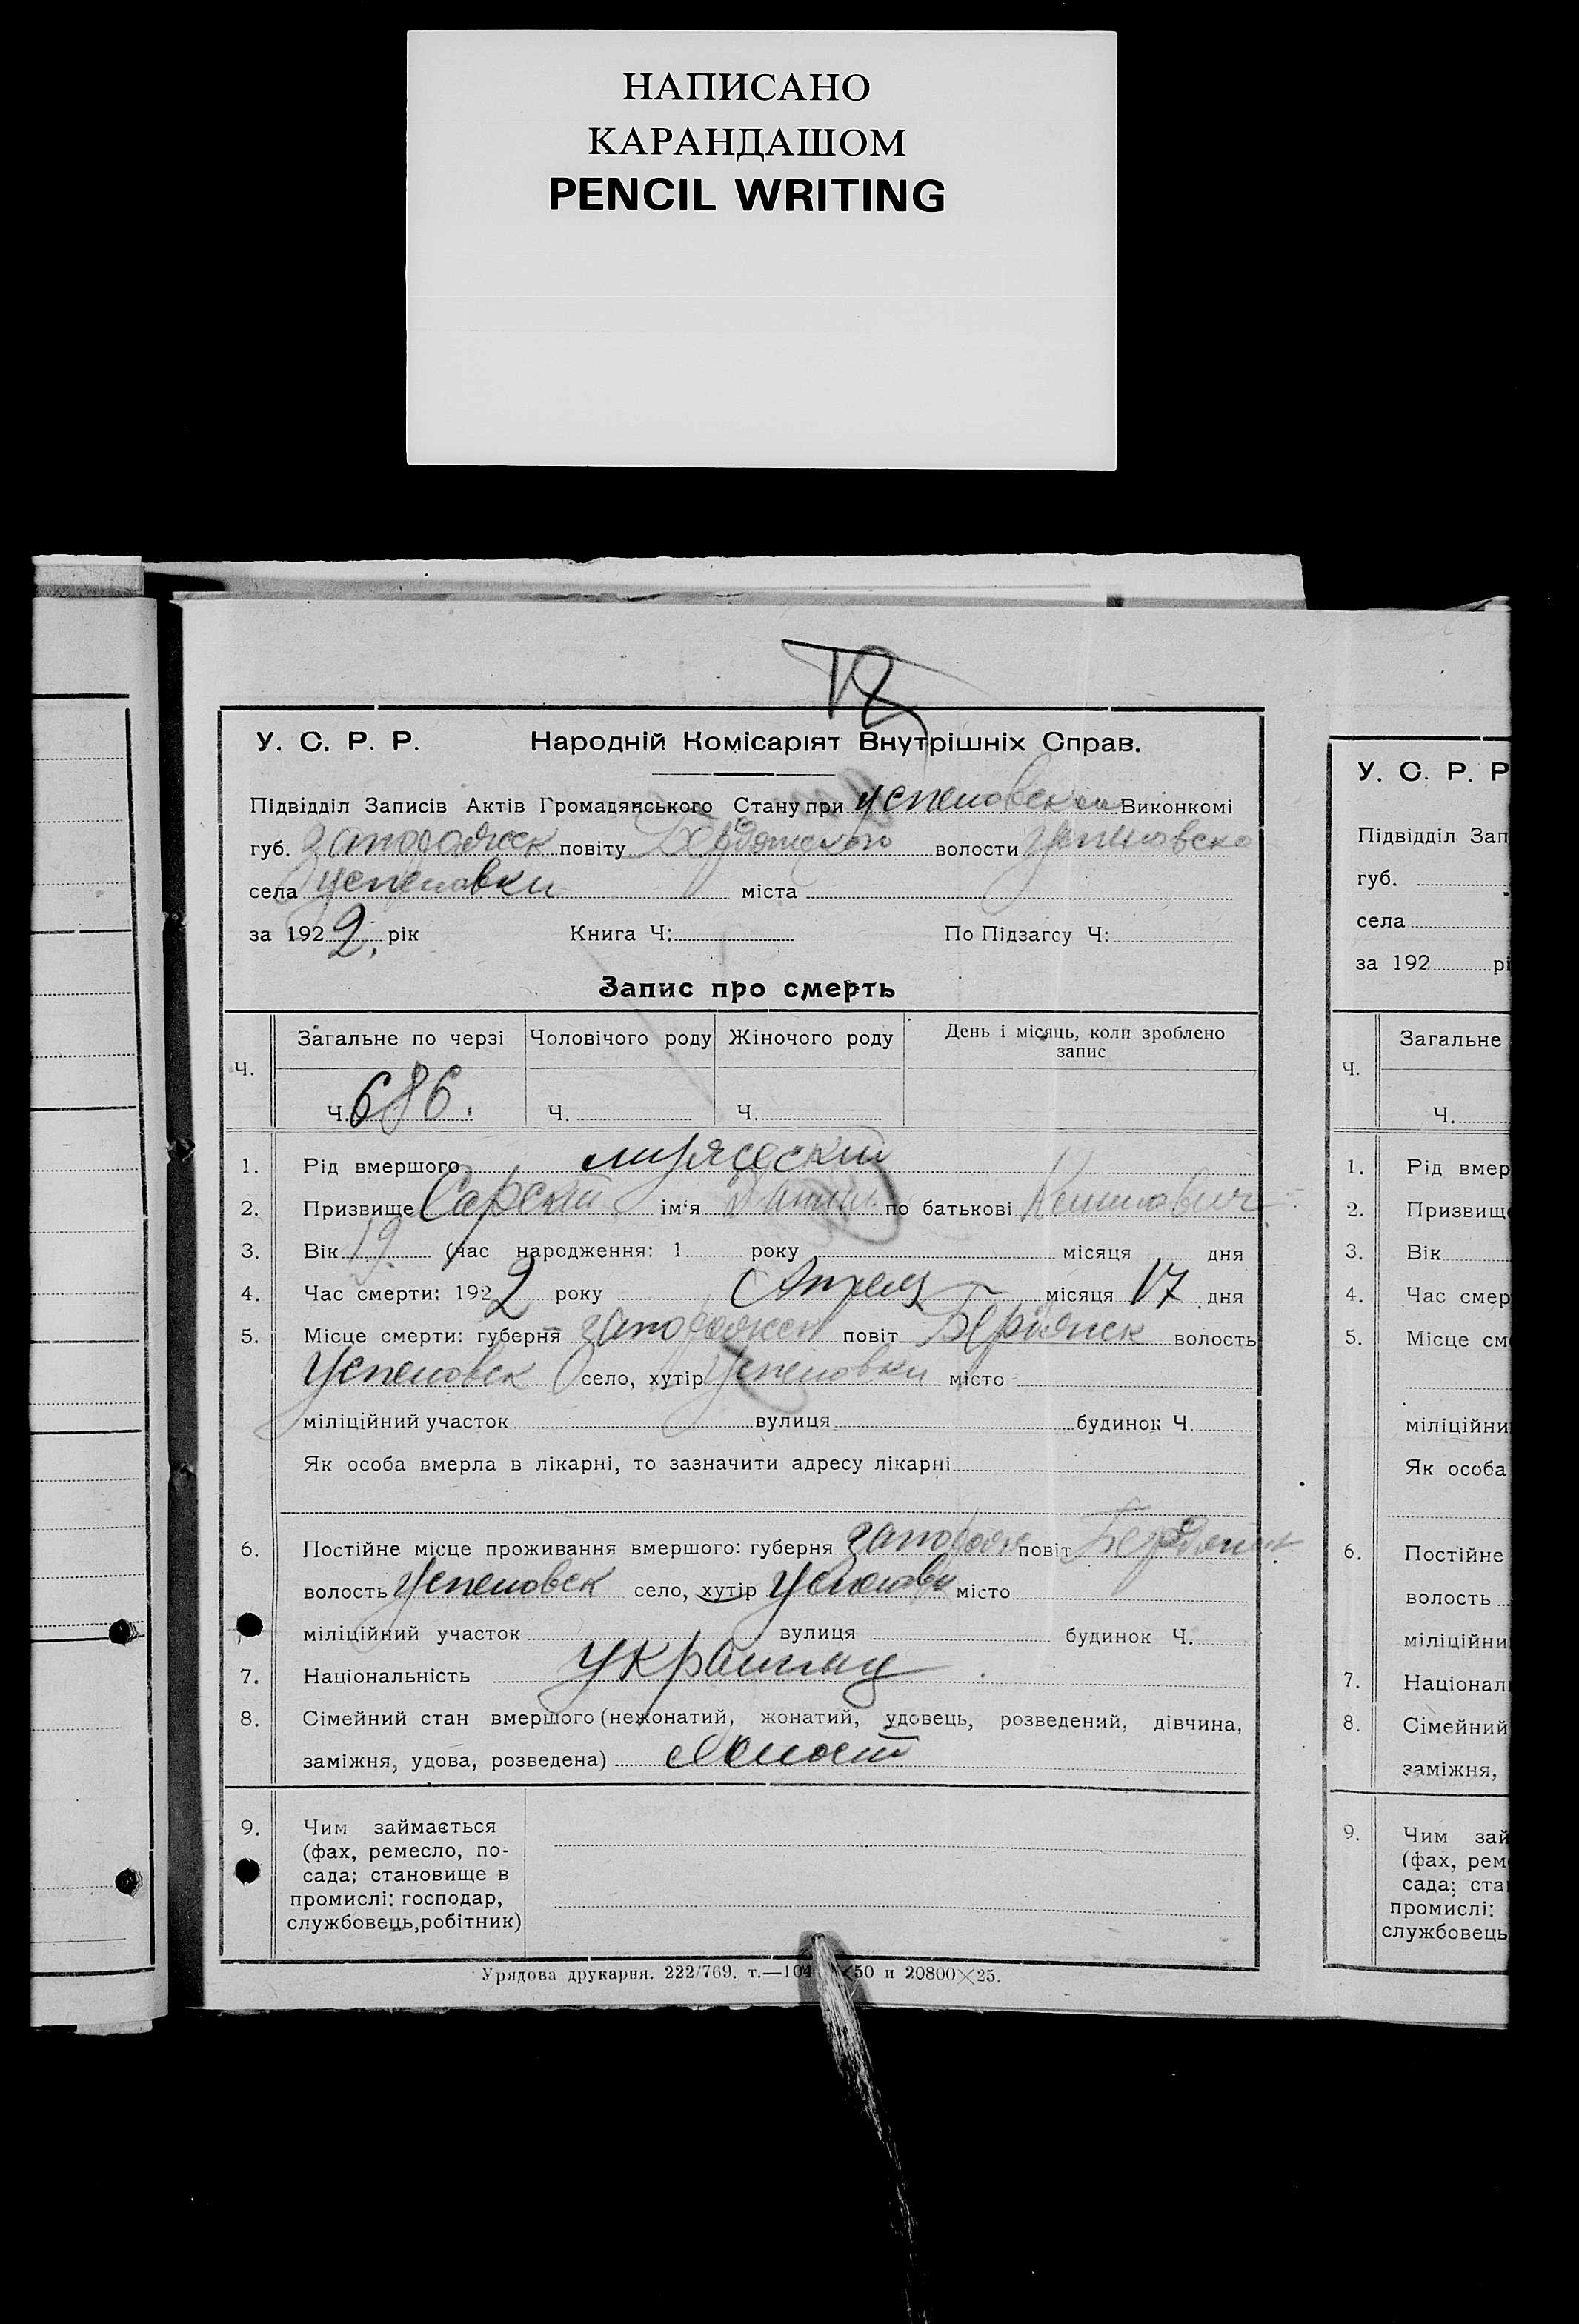 НАПИСАНО
КАРАНДАШОМ
PENCIL WRITING
У. С. Р. Р. Народній Комісаріят Внутрішніх Справ.
Підвідділ Записів Актів Громадянського Стану при Успеновском Виконкомі
губ. Запорожск повіту Бердянского волости Успеновско
села Успеновки міста
за 1922. рік Книга Ч: По Підзагсу Ч:
Запис про смерть
Ч. Загальне по черзі Чоловічого роду Жіночого роду День і місяць, коли зроблено
запис
Ч. 686. Ч. Ч.
1. Рід вмершого мужеский
2. Призвище ім'я по батькові
3. Вік 19. (час народження: 1 року місяця дня
4. Час смерти: 1922 року Апреля місяця 17 дня
5. Місце смерти: губерня Запорожск повіт Бердянск волость
Успеновск село, хутір Успеновки місто
міліційний участок вулиця будинок Ч.
Як особа вмерла в лікарні, то зазначити адресу лікарні
6. Постійне місце проживання вмершого: губерня повіт Бердянск
волость Успеновск село, хутір місто
міліційний участок вулиця будинок Ч.
7. Національність
8. Сімейний стан вмершого (нежонатий, жонатий, удовець, розведений, дівчина,
заміжня, удова, розведена) холост
9. Чим займається
(фах, ремесло, по-
сада; становище в
промислі: господар,
службовець, робітник)
Урядова друкарня. 222/769. т.—104 ×50 и 20800×25.
У. С. Р. Р
Підвідділ Зап
губ.
села
за 192 рі
Ч. Загальне
Ч.
1. Рід вмер
2. Призвищ
3. Вік
4. Час смер
5. Місце см
міліційни
Як особа
6. Постійне
волость
міліційни
7. Націонал
8. Сімейний
заміжня,
9. Чим зай
(фах, рем
сада; ста
промислі:
службовець